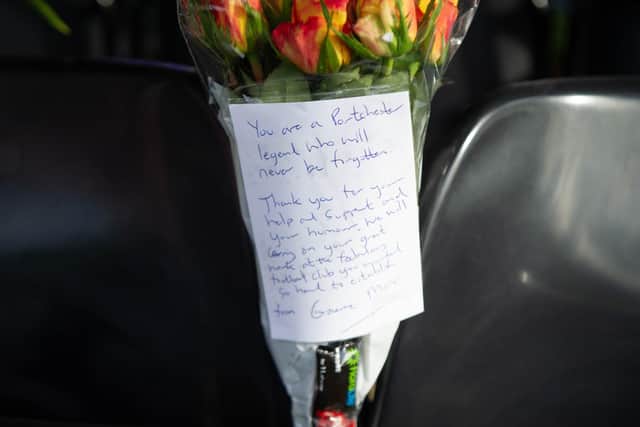 You are a Portchester
legend who will
never be forgotten.
Thank you for your
help and support and
your humour. We will
carry on your great
work at the fabulous
football club you worked
so hard to establish
from Graeme